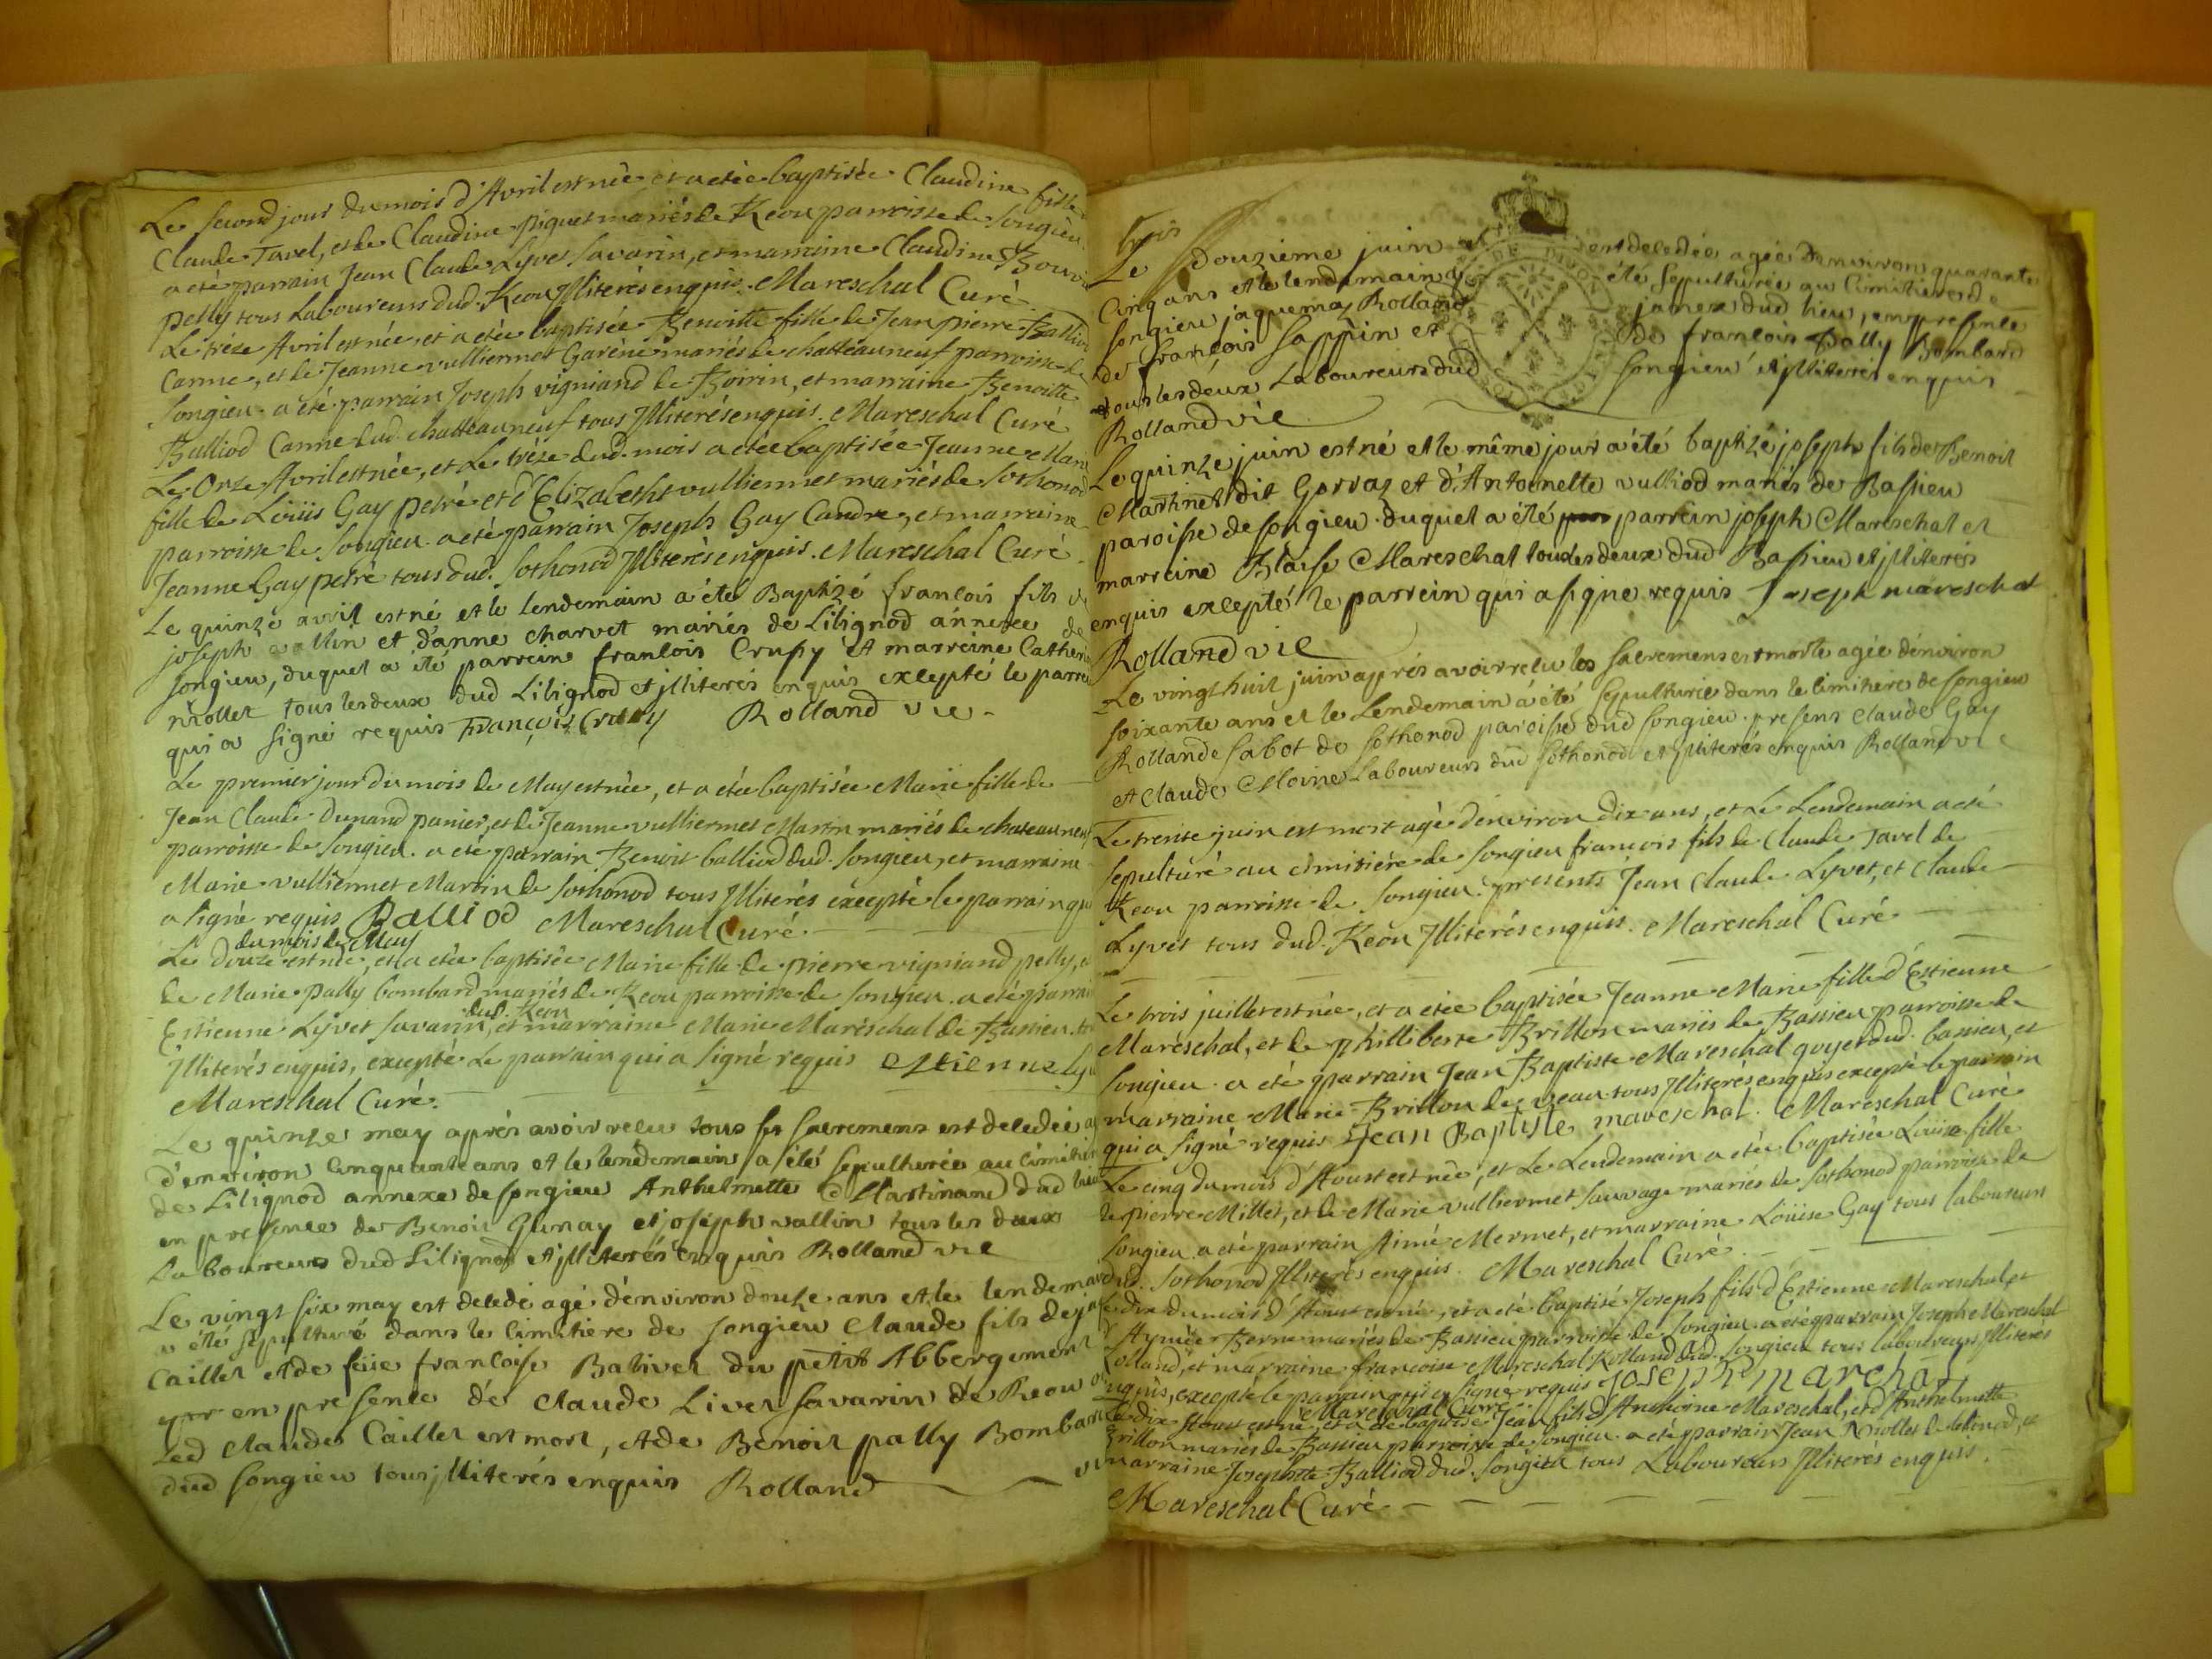 Le second jour du mois d'Avril est née et a etée baptisée Claudine fille
Claude Tavel, et de Claudine piguet mariés de Keou parroisse de Songieu
a eté parrain Jean Claude Lyvet Savarin, et marraine Claudine
pelly tous Laboureurs dud. Keou Jlliterés enquis. Mareschal Curé
Le treze Avril est née, et a etée baptisée Benoitte fille de Jean pierre Balliod
Canne, et de Jeanne vulliermet Garène mariés de chatteauneuf parroisse de
Songieu. a eté parrain Joseph vigniand de Boirin, et marraine Benoitte
Balliod Canne dud. chatteauneuf tous Jlliterés enquis. Mareschal Curé
Le Onze Avril est née, et Le trèze dud. mois a etée baptisée Jeanne Marie
fille de Loüis Gay petré et d'Elizabeth vulliermet mariés de Sothonod
parroisse de Songieu. a eté parrain Joseph Gay Candre, et marraine
Jeanne Gay petré tous dud. Sothonod Jlliterés enquis. Mareschal Curé
Le quinze avril est né et le lendemain a été Baptizé francois fils de
joseph vallin et d'anne charvet mariés de Lilignod annexe de
songieu, duquel a été parrein francois Crussy et marreine Catherine
niollet tous les deux dud Lilignod et jlliterés enquis excepté le parrein
qui a signé requis François Crussy Rolland vie
Le premier jour du mois de May est née, et a etée baptisée Marie fille de
Jean Claude Dunand panier, et de Jeanne vulliermet Martin mariés de chateauneuf
parroisse de Songieu. a eté parrain Benoit balliod dud. Songieu, et marraine
Marie vulliermet Martin de Sothonod tous Jlliterés excepté le parrain qui
a signé requis Balliod Mareschal Curé.
du mois de May
Le Douze est née, et a etée baptisée Marie fille de pierre vigniand pelly, et
de Marie pally bombard mariés de Keou parroisse de Songieu. a eté parrain
dud. Keou
Estienne Lyvet Savarin, et marraine Marie Maréschal de Bassieu. tous
Jlliterés enquis, excepté Le parrain qui a signé requis Estienne Ly
Mareschal Curé.
Le quinze may aprés avoir recu tous ses sacremens est decedée agée
d'environ cinquante ans et le lendemain a été sepulturée au cimetiere
de Lilignod annexe de songieu Anthelmette Martinand dud lieu
en presence de Benoit Gunay et joseph vallin tous les deux
Laboureurs dud Lilignod et jlliterés enquis Rolland vie
Le vingt six may est decedé agé d'environ douze ans et le lendemain
a été sepulturé dans le cimitiere de songieu Claude fils de
Caillet et de feüe francoise Balivet du petit Abbergement
en presence de Claude Livet savarin de Keou ou
led Claude Caillet est mort, et de Benoit pally Bombard
dud songieu tous jlliterés enquis Rolland vie
Le Douzieme juin est decedée agée d'environ quarante
cinq ans et le lendemain a été sepulturée au cimitiere de
songieu jaquemaz Rolland janex dud lieu, en presence
de françois sappin et de francois Pally Bombard
tous les deux Laboureurs dud songieu et jlliterés enquis
Rolland vie
Le quinze juin est né et le même jour a été baptizé joseph fils de Benoit
Martinet dit Gorraz et d'Antoinette vulliod mariés de Bassieu
paroisse de songieu. duquel a été parrein joseph Mareschal et
marreine Blaise Mareschal tous les deux dud Bassieu et jlliterés
enquis excepté le parrein qui a signe requis Joseph mareschal
Rolland vie
Le vingt huit juin aprés avoir recu les sacremens est morte agée d'environ
soixante ans et le Lendemain a été sepulturée dans le cimitiere de songieu
Rollande Sabot de Sothonod paroisse dud songieu. presens Claude Gay
et Claude Moine Laboureurs dud Sothonod et jlliterés enquis Rolland vie
Le trente juin est mort agé d'environ dix ans, et Le Lendemain a eté
sepulturé au cimitière de Songieu francois fils de Claude Tavel de
Keou parroisse de Songieu. presents Jean Claude Lyvet, et Claude
Lyvet tous dud. Keou Jlliterés enquis. Mareschal Curé
Le trois juillet est née, et a etée baptisée Jeanne Marie fille d'Estienne
Maréschal, et de philliberte Brillon mariés de Bassieu parroisse de
Songieu. a eté parrain Jean Baptiste Mareschal goyet dud. bassieu, et
marraine Marie Brillon de veau tous Jlliterés enquis excepté le parrain
qui a signé requis Jean Baptiste mareschal. Mareschal Curé
Le cinq du mois d'Aoust est née, et Le Lendemain a etée baptisée Loüise fille
de pierre Millet, et de Marie vulliermet Sauvage mariés de Sothonod parroisse de
Songieu. a eté parrain Aimé Mermet, et marraine Loüise Gay tous laboureurs
dud. Sothonod Jlliterés enquis. Mareschal Curé
Le dix du mois d'Aoust est né, et a eté baptisé Joseph fils d'Estienne Mareschal et
d'Aymée Berne mariés de Bassieu parroisse de Songieu. a eté parrain Joseph Mareschal
Rolland, et marraine francoise Mareschal Rolland dud. Songieu tous laboureurs Jlliterés
enquis, excepté le parrain qui a signé requis joseph marchal
Mareschal Curé
Le dix Aoust est né, et a eté baptisé Jean fils d'Anthoine Mareschal, et d'Anthelmette
Brillon mariés de Bassieu parroisse de Songieu. a eté parrain Jean Niollet de lilinod, et
marraine Josephte Balliod dud. Songieu tous Laboureurs Jlliterés enquis.
Mareschal Curé